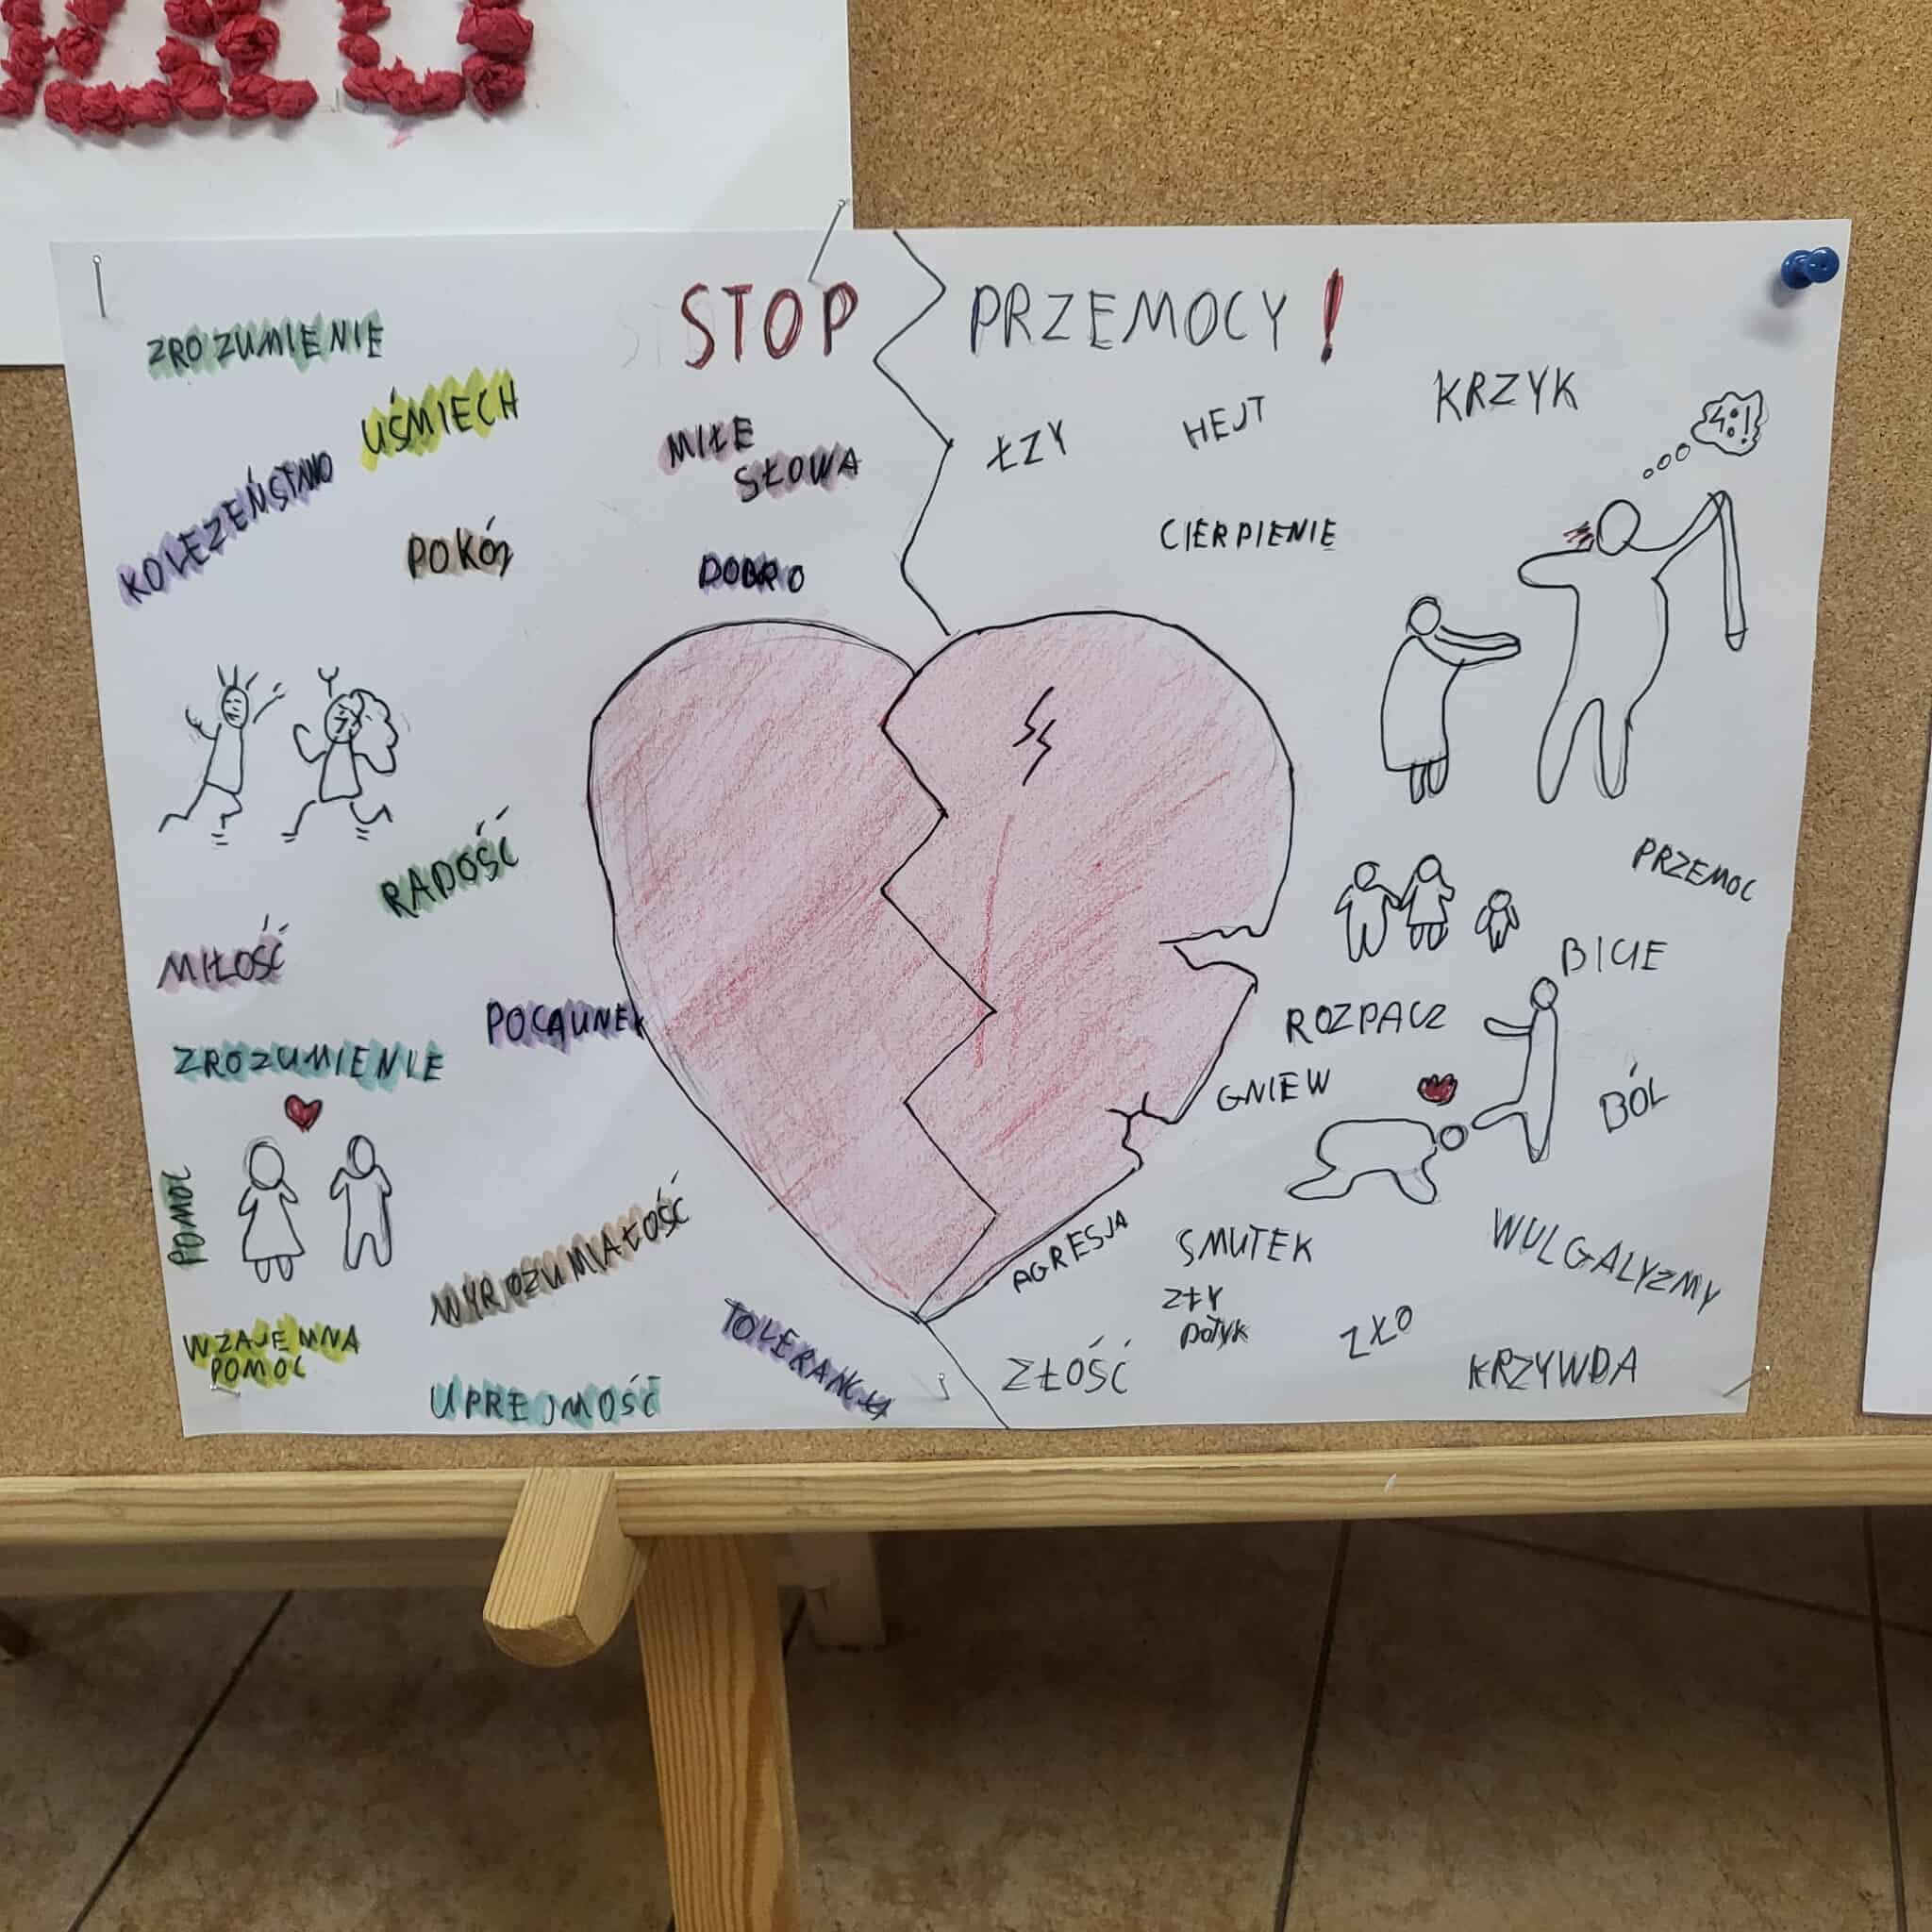 STOP PRZEMOCY!
ZROZUMIENIE
UŚMIECH
KOLEZEŃSTWO
POKÓJ
MIŁE
SŁOWA
DOBRO
RADOŚĆ
MIŁOŚĆ
POCAUNEK
ZROZUMIENIE
POMOC
WYROZUMIAŁOŚĆ
WZAJEMNA
POMOC
UPREJMOŚĆ
TOLERANCJA
KRZYK
HEJT
ŁZY
CIERPIENIE
PRZEMOC
BICIE
ROZPACZ
GNIEW
BÓL
AGRESJA
SMUTEK
WULGALYZMY
ZŁY
DOTYK
ZŁO
ZŁOŚĆ
KRZYWDA